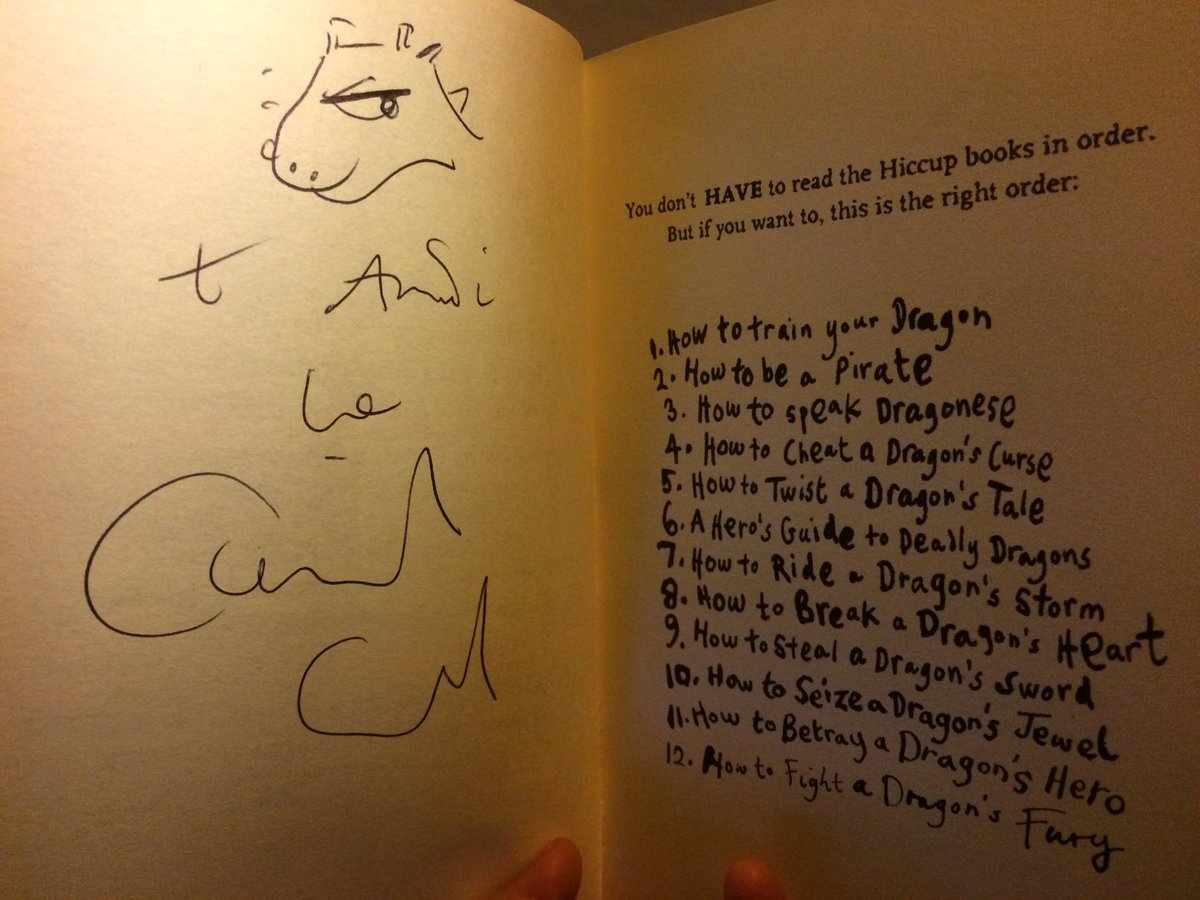 t Andi
You don't HAVE to read the Hiccup books in order.
But if you want to, this is the right order:
1. How to train your Dragon
2. How to be a Pirate
3. How to speak Dragonese
4. How to Cheat a Dragon's Curse
5. How to Twist a Dragon's Tale
6. A Hero's Guide to Deadly Dragons
7. How to Ride a Dragon's Storm
8. How to Break a Dragon's Heart
9. How to Steal a Dragon's Sword
10. How to Seize a Dragon's Jewel
11. How to Betray a Dragon's Hero
12. How to Fight a Dragon's Fury